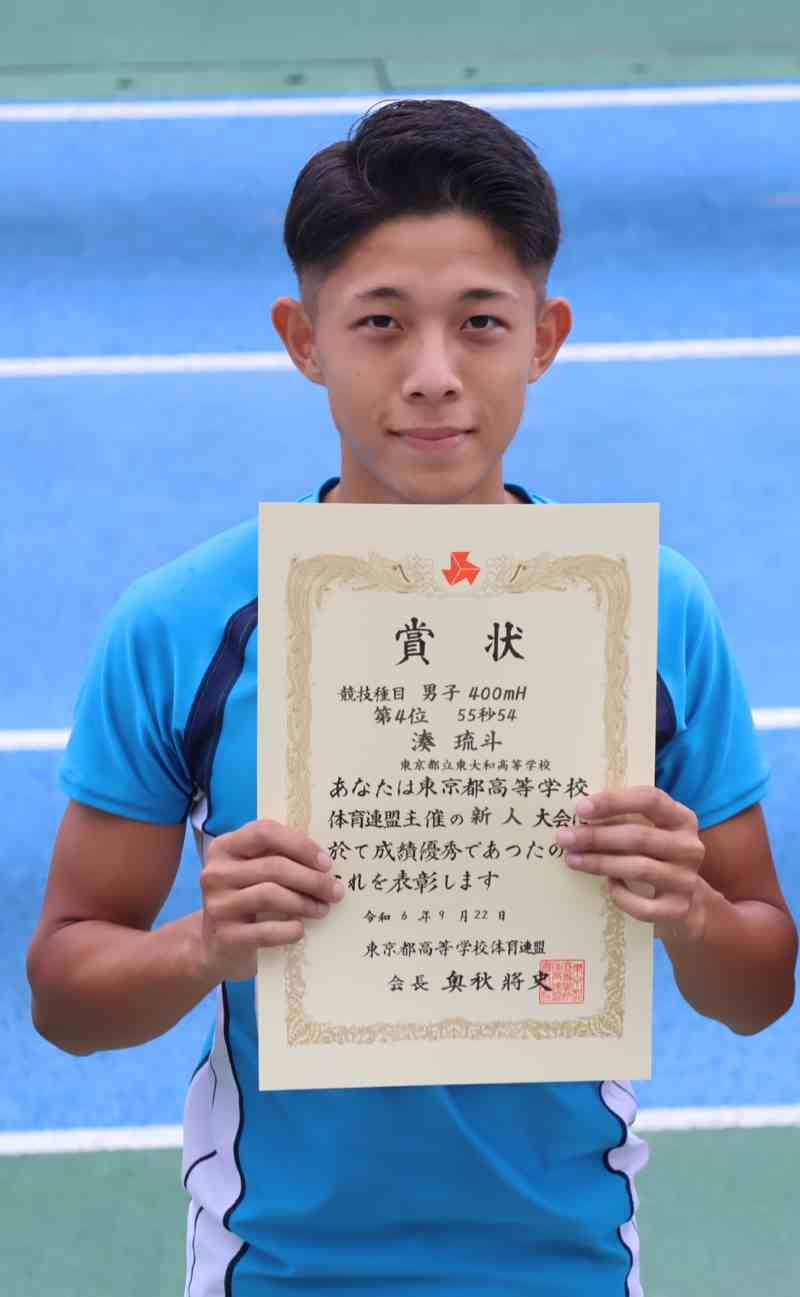 賞 状
競技種目 男子 400mH
第4位 55秒54
湊 琉斗
東京都立東大和高等学校
あなたは東京都高等学校
体育連盟主催の新人大会に
於て成績優秀であつたの
これを表彰します
令和 6 年 9 月 22 日
東京都高等学校体育連盟
会長 奥秋將史